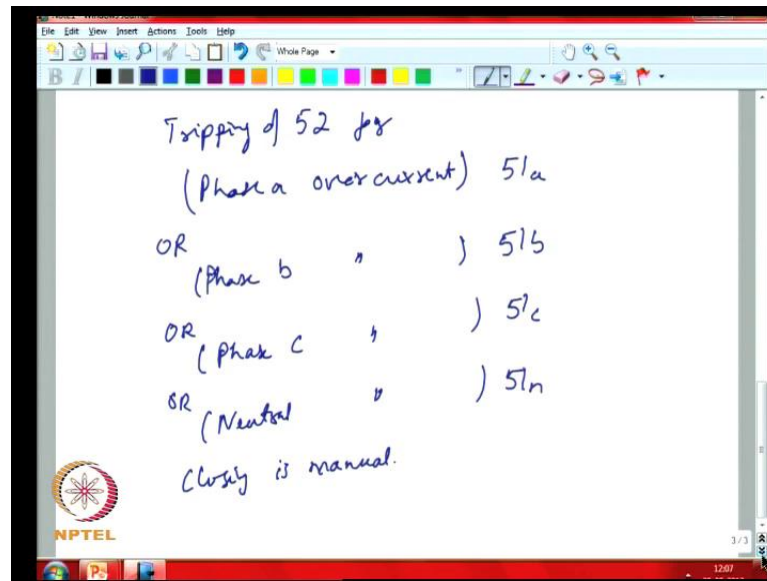 Note1 - Windows Journal
File Edit View Insert Actions Tools Help
Whole Page
B I
Tripping of 52 for
(Phase a over current) 51a
OR
(Phase b " ) 51b
OR
(Phase c " ) 51c
OR
(Neutral " ) 51n
Closing is manual.
NPTEL
3/3
12:07